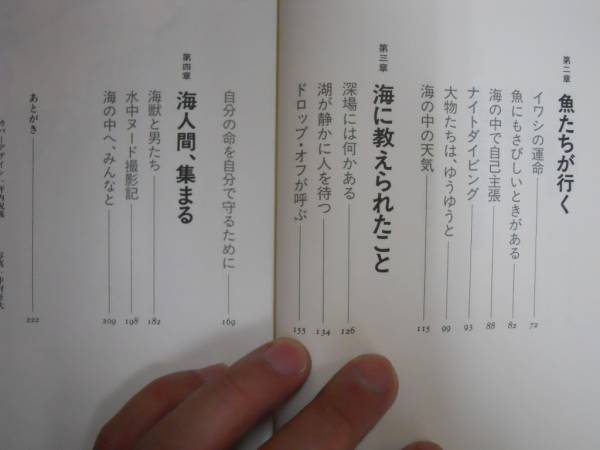 第二章 魚たちが行く
イワシの運命 72
魚にもさびしいときがある 82
海の中で自己主張 88
ナイトダイビング 93
大物たちは、ゆうゆうと 99
海の中の天気 115
第三章 海に教えられたこと
深場には何かある 126
湖が静かに人を待つ 134
ドロップ・オフが呼ぶ 155
自分の命を自分で守るために 169
第四章 海人間、集まる
海獣と男たち 182
水中ヌード撮影記 198
海の中へ、みんなと 209
あとがき 222
カバーデザイン・坪内祝義
写真・中村